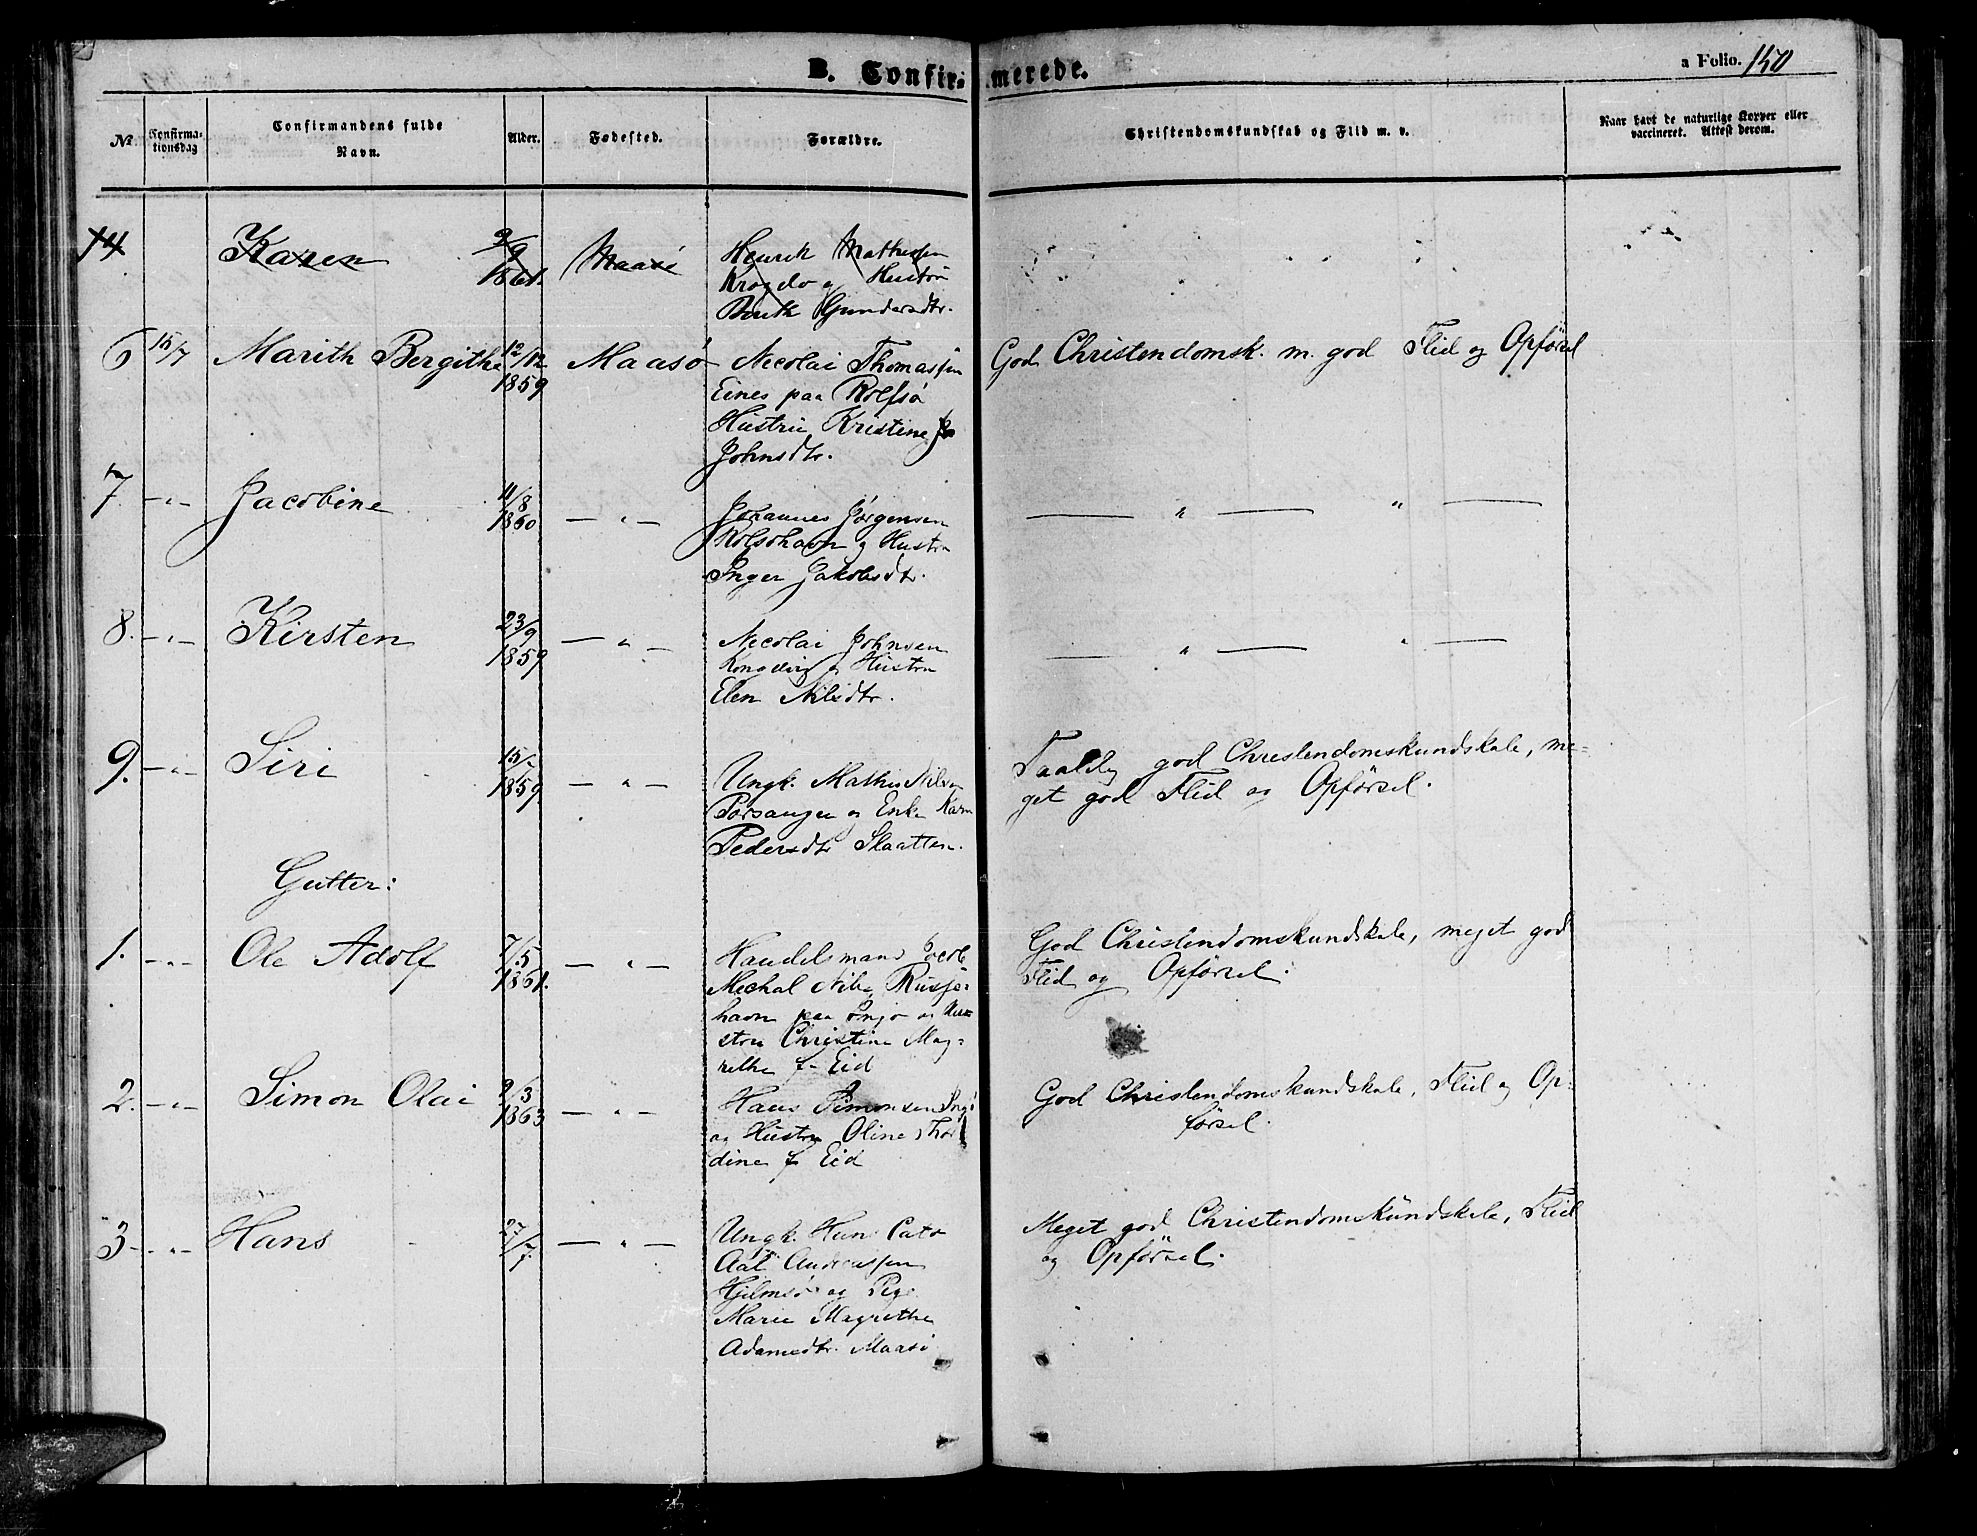 B. Confirmerede.
a Folio. 150
No
Konfirma-
tionsdag
Confirmandens fulde
Navn.
Alder.
Fødested.
Forældre.
Christendomskundskab og Flid m. v.
Naar havt de naturlige Kopper eller
vaccineret. Attest derom.
14 Karen 2/9 1861. Maasö Henrik Mathissen
og Hustru
Berit Gundersdtr.
6 15/7 Marith Bergithe 12/12 1859 Maasö Necolai Thomassen God Christendomsk. m. god Flid og Opførsel
Eines paa Rolfsö
Hustru Kristine
Johnsdtr.
7. —"— Jacobine 11/8 1860 —"— Johannes Jørgensen — " — " —
Rolfsöhavn og Hustru
Inger Jakobsdtr.
8. —"— Kirsten 23/9 1859 —"— Necolai Johnsen — " — " —
og Hustru
Elen Nilsdtr.
9. —"— Siri 15/ 1859 —"— Ungk. Mathis Nilsen Taalelig god Christendomskundskab, me-
Porsanger og Enke Karen get god Flid og Opførsel.
Pedersdtr Slaatten.
Gutter:
1. —"— Ole Adolf 7/5 1861. —"— Handelsmand Jacob God Christendomskundskab, meget god
Mechal Nils Flid og Opførsel.
havn paa Ingö og Hu-
stru Christine Mag-
rethe f. Eid
2. —"— Simon Olai 9/3 1863 —"— Hans Simonsen Ingö God Christendomskundskab, Flid og Op-
og Hustru Oline Thor førsel.
dine f. Eid
3 —"— Hans 27/7. —"— Ungk. Hans Meget god Christendomskundskab, Flid
Andreassen og Opførsel.
Hjelmsö og Pige
Marie Magrethe
Adamsdtr. Maasö